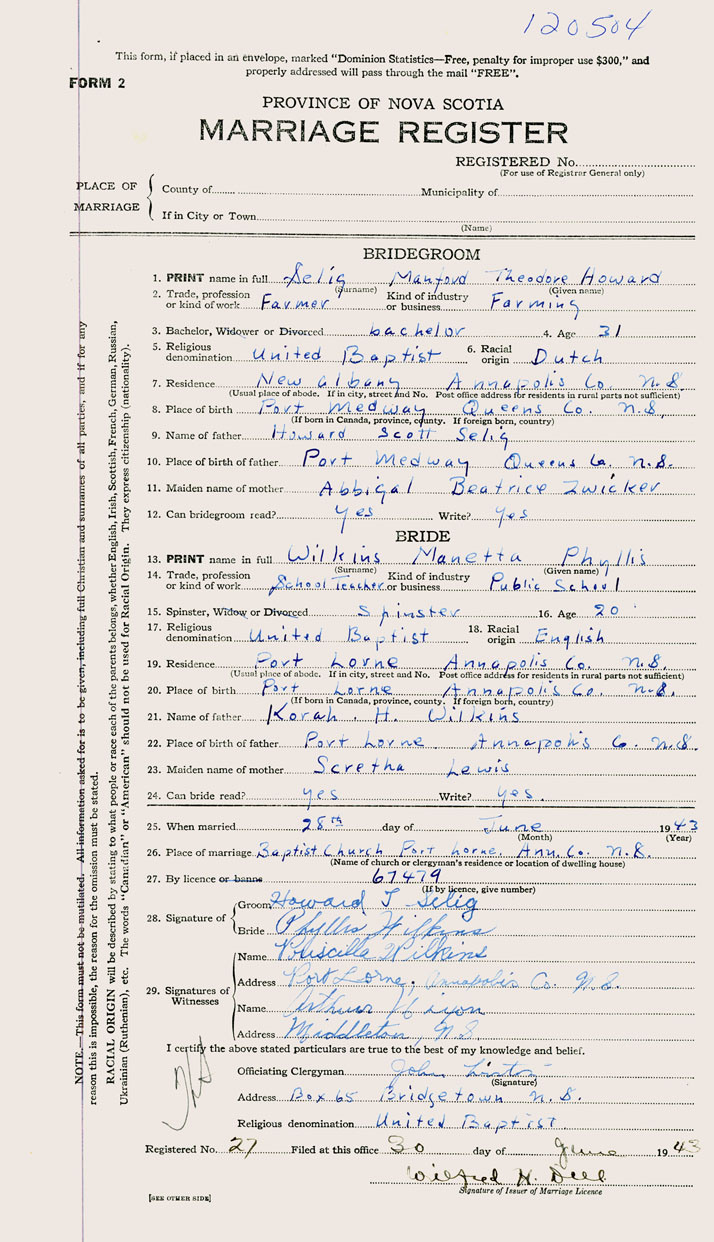 120504
This form, if placed in an envelope, marked "Dominion Statistics—Free, penalty for improper use $300," and
properly addressed will pass through the mail "FREE".
FORM 2
PROVINCE OF NOVA SCOTIA
MARRIAGE REGISTER
REGISTERED No.
(For use of Registrar General only)
PLACE OF MARRIAGE
County of Municipality of
If in City or Town
(Name)
BRIDEGROOM
1. PRINT name in full Selig Manford Theodore Howard
(Surname) (Given name)
2. Trade, profession or kind of work Farmer Kind of industry or business Farming
3. Bachelor, Widower or Divorced bachelor 4. Age 31
5. Religious denomination United Baptist 6. Racial origin Dutch
7. Residence New Albany Annapolis Co. N.S.
(Usual place of abode. If in city, street and No. Post office address for residents in rural parts not sufficient)
8. Place of birth Port Medway Queens Co. N.S.
(If born in Canada, province, county. If foreign born, country)
9. Name of father Howard Scott Selig
10. Place of birth of father Port Medway Queens Co. N.S.
11. Maiden name of mother Abbigal Beatrice Zwicker
12. Can bridegroom read? yes Write? yes
BRIDE
13. PRINT name in full Wilkins Manetta Phyllis
(Surname) (Given name)
14. Trade, profession or kind of work School Teacher Kind of industry or business Public School
15. Spinster, Widow or Divorced Spinster 16. Age 20
17. Religious denomination United Baptist 18. Racial origin English
19. Residence Port Lorne Annapolis Co. N.S.
(Usual place of abode. If in city, street and No. Post office address for residents in rural parts not sufficient)
20. Place of birth Port Lorne Annapolis Co. N.S.
(If born in Canada, province, county. If foreign born, country)
21. Name of father Korah. H. Wilkins
22. Place of birth of father Port Lorne Annapolis Co. N.S.
23. Maiden name of mother Scretha Lewis
24. Can bride read? yes Write? yes.
25. When married 28th day of June 1943
(Month) (Year)
26. Place of marriage Baptist Church Port Lorne, Ann. Co. N.S.
(Name of church or clergyman's residence or location of dwelling house)
27. By licence or banns 67479
(If by licence, give number)
28. Signature of
Groom Howard T Selig
Bride Phyllis Wilkins
29. Signatures of Witnesses
Name Priscilla Wilkins
Address Port Lorne, Annapolis Co. N.S.
Name Arthur Nixon
Address Middleton, N.S
I certify the above stated particulars are true to the best of my knowledge and belief.
Officiating Clergyman John
(Signature)
Address Box 65 Bridgetown N.S.
Religious denomination United Baptist
Registered No. 27 Filed at this office 30 day of June 1943
Wilfred H. Dill
Signature of Issuer of Marriage Licence
[SEE OTHER SIDE]
NOTE.—This form must not be mutilated. All information asked for is to be given, including full Christian and surnames of all parties, and if for any
reason this is impossible, the reason for the omission must be stated.
RACIAL ORIGIN will be described by stating to what people or race each of the parents belongs, whether English, Irish, Scottish, French, German, Russian,
Ukrainian (Ruthenian), etc. The words "Canadian" or "American" should not be used for Racial Origin. They express citizenship (nationality).